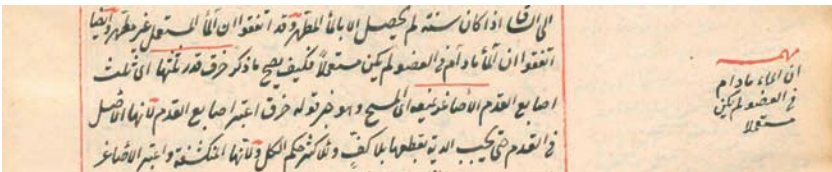 الى الساق اذا كان سنة لم يحصل الا بالماء المطهر وقد اتفقوا ان الماء المستعمل غير مطهر وايضا
اتفقوا ان الماء مادام في العضو لم يكن مستعملا فكيف يصح ما ذكر خرق قدر ثلثها اى ثلث
اصابع القدم الأصاغر يمنعه اى المسح وهو خبر قوله خرق اعتبر اصابع القدم لانها الاصل
في القدم حتى يجب الدية بقطعها بلا كف وللاكثر حكم الكل ولانها المنكشفة واعتبر الأصاغر
مهمه
ان الماء مادام
في العضو لم يكن
مستعملا